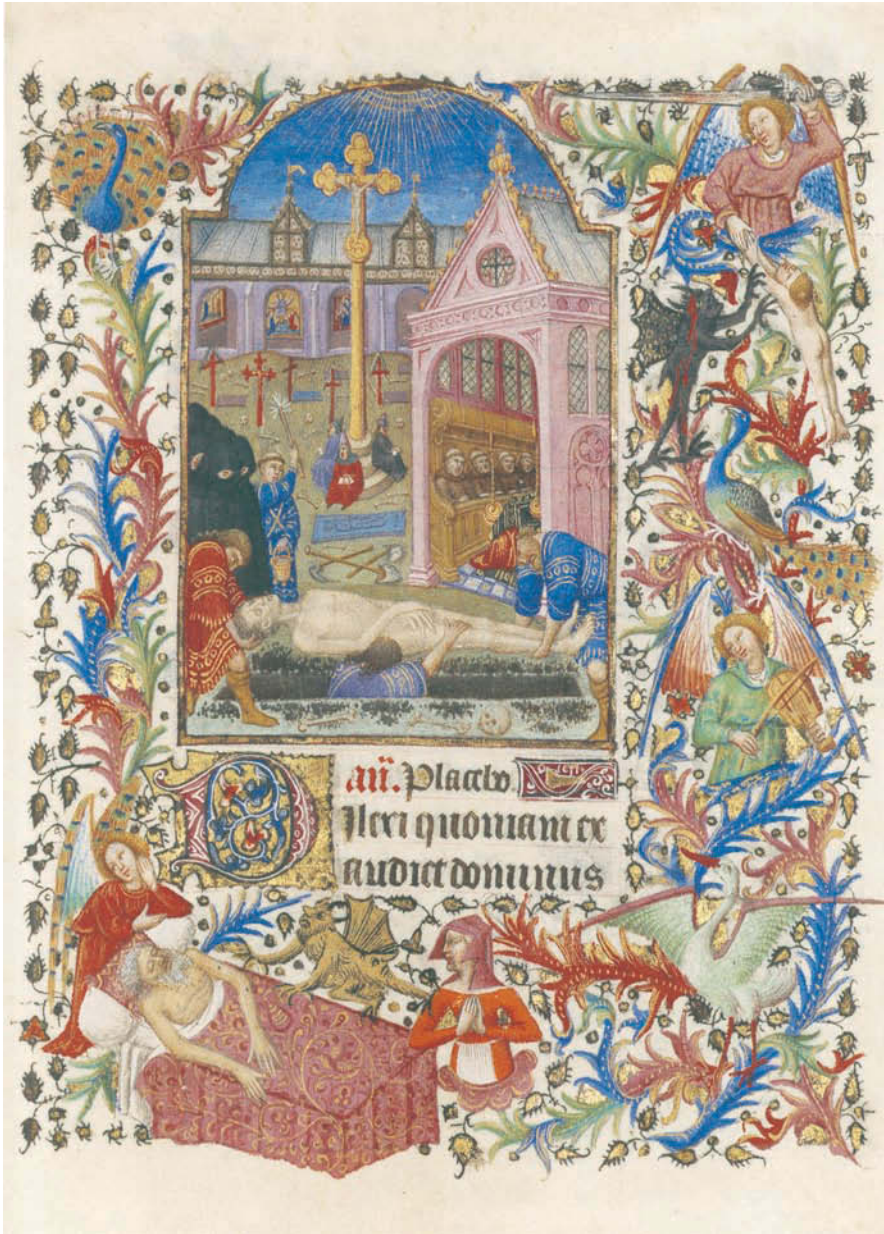 an̄. Placebo
Dilexi quoniam ex
audiet dominus